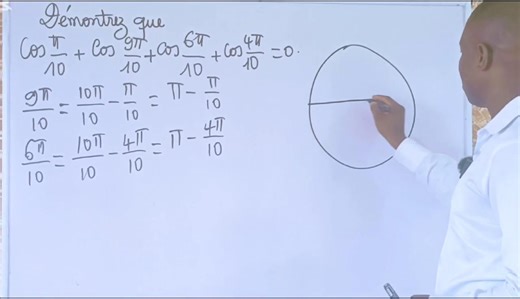 Démontrez que
cos π/10 + cos 9π/10 + cos 6π/10 + cos 4π/10 = 0.
9π/10 = 10π/10 - π/10 = π - π/10
6π/10 = 10π/10 - 4π/10 = π - 4π/10